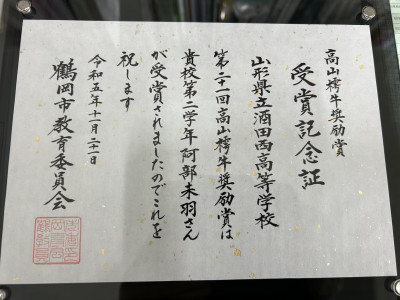 高山樗牛奨励賞
受賞記念証
山形県立酒田西高等学校
第二十一回高山樗牛奨励賞は
貴校第二学年阿部未羽さん
が受賞されましたのでこれを
祝します
令和五年十一月二十一日
鶴岡市教育委員会